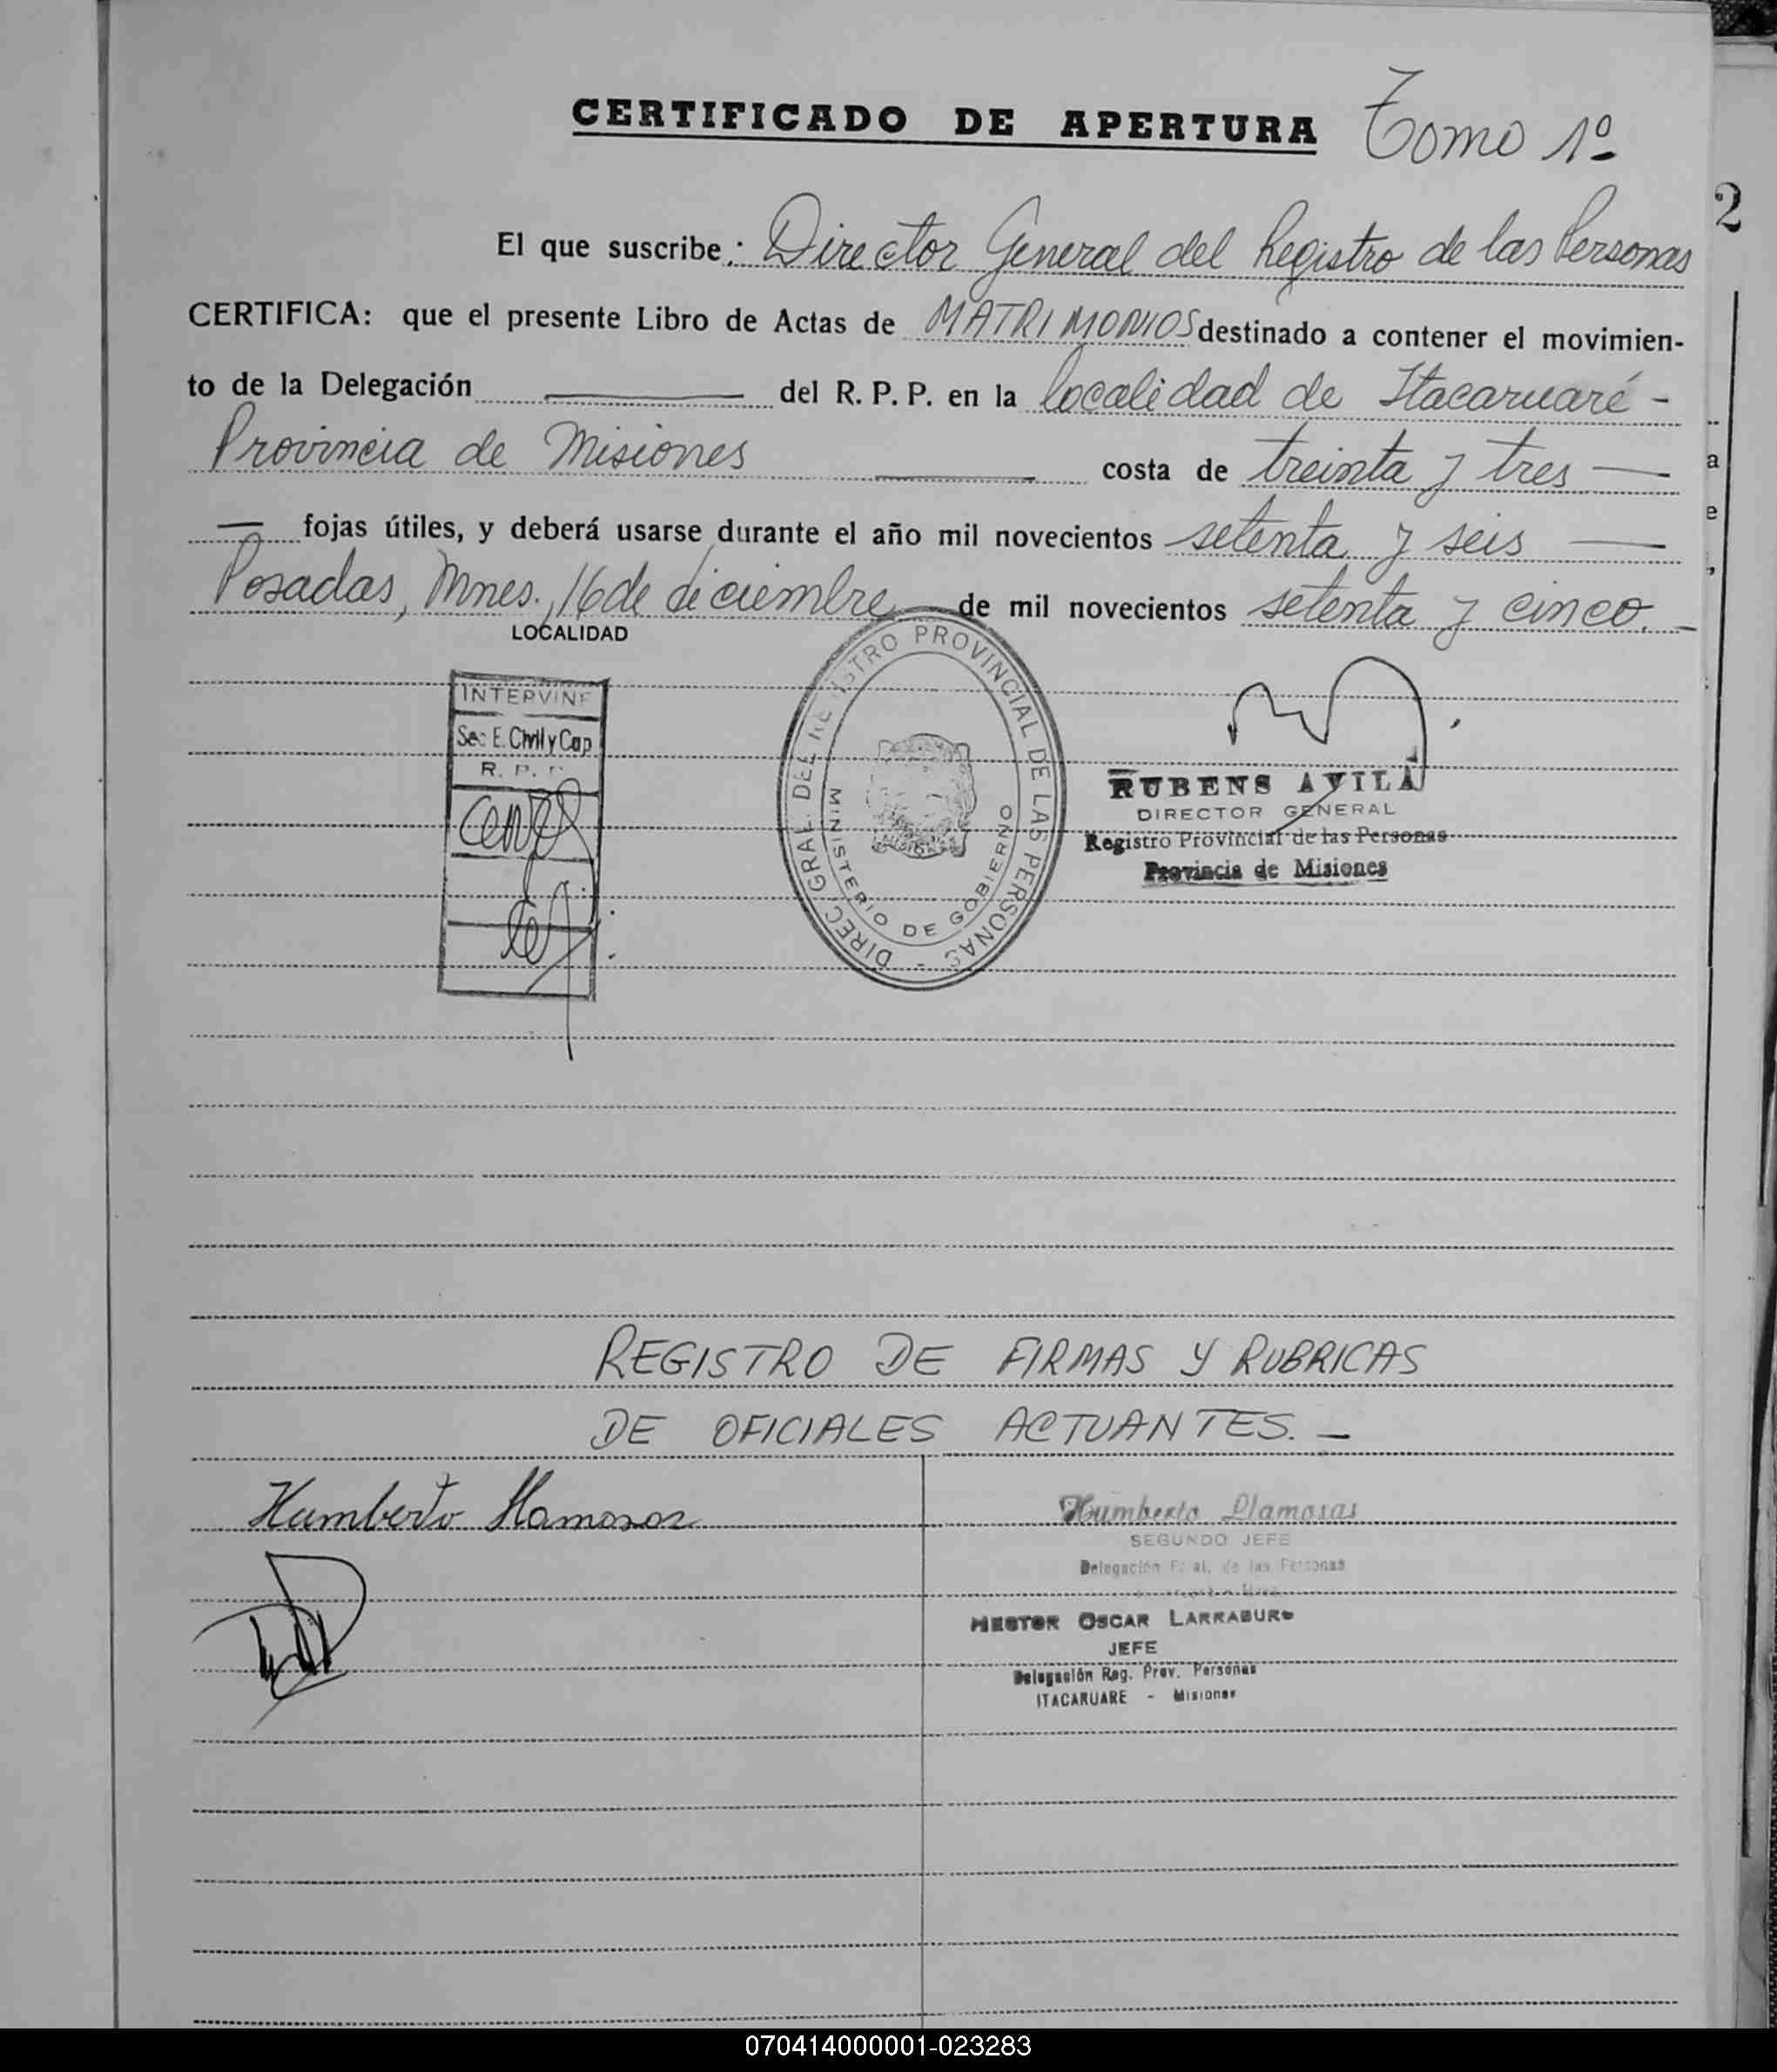 CERTIFICADO DE APERTURA Tomo 1º
2
El que suscribe: Director General del Registro de las Personas
CERTIFICA: que el presente Libro de Actas de MATRIMONIOS destinado a contener el movimien-
to de la Delegación del R. P. P. en la localidad de Itacaruaré -
Provincia de Misiones costa de treinta y tres
fojas útiles, y deberá usarse durante el año mil novecientos setenta y seis
Posadas, Mnes. 16 de diciembre de mil novecientos setenta y cinco.
LOCALIDAD
INTERVINE
Sec E. Civil y Cap
R. P.
DIREC. GRAL. DEL REGISTRO PROVINCIAL DE LAS PERSONAS -
MINISTERIO DE GOBIERNO
RUBENS AVILA
DIRECTOR GENERAL
Registro Provincial de las Personas
Provincia de Misiones
REGISTRO DE FIRMAS Y RUBRICAS
DE OFICIALES ACTUANTES. -
Humberto Llamosas
Humberto Llamosas
SEGUNDO JEFE
Delegación de las Personas
HESTOR OSCAR LARRABURO
JEFE
Delegación Reg. Prov. Personas
ITACARUARE - Misiones
070414000001-023283